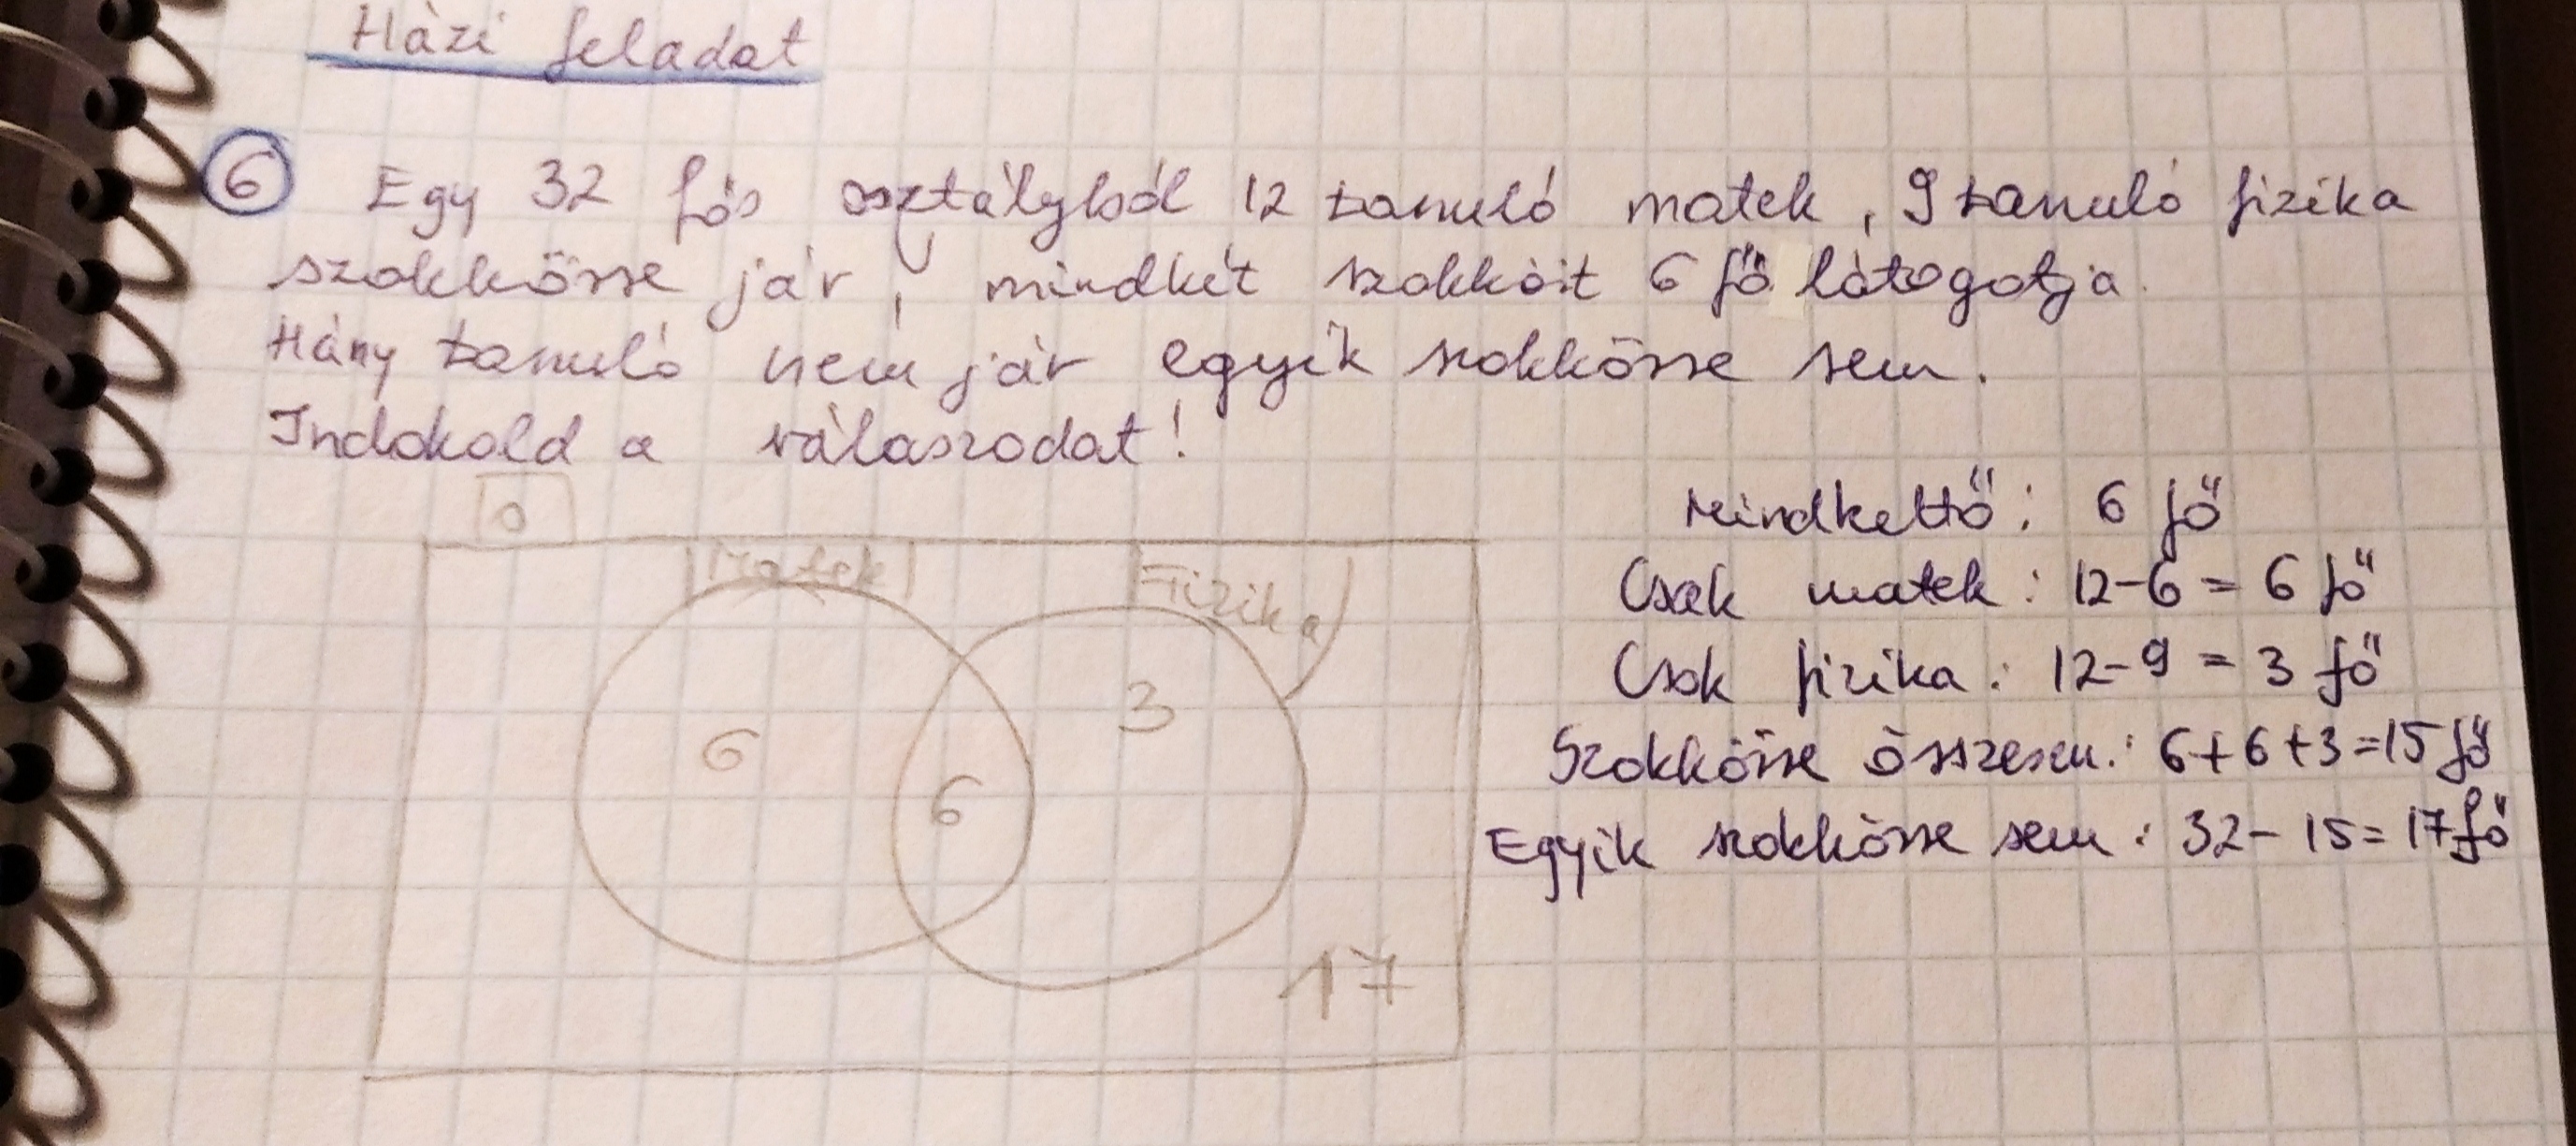 Házi feladat
6 Egy 32 fős osztályból 12 tanuló matek, 9 tanuló fizika
szakkörre jár, mindkét szakkört 6 fő látogatja.
Hány tanuló nem jár egyik szakkörre sem.
Indokold a válaszodat!
o
Matek Fizika
6 6 3
17
Mindkettő: 6 fő
Csak matek: 12-6 = 6 fő
Csak fizika: 12-9 = 3 fő
Szakkörre összesen: 6+6+3=15 fő
Egyik szakkörre sem: 32-15=17 fő